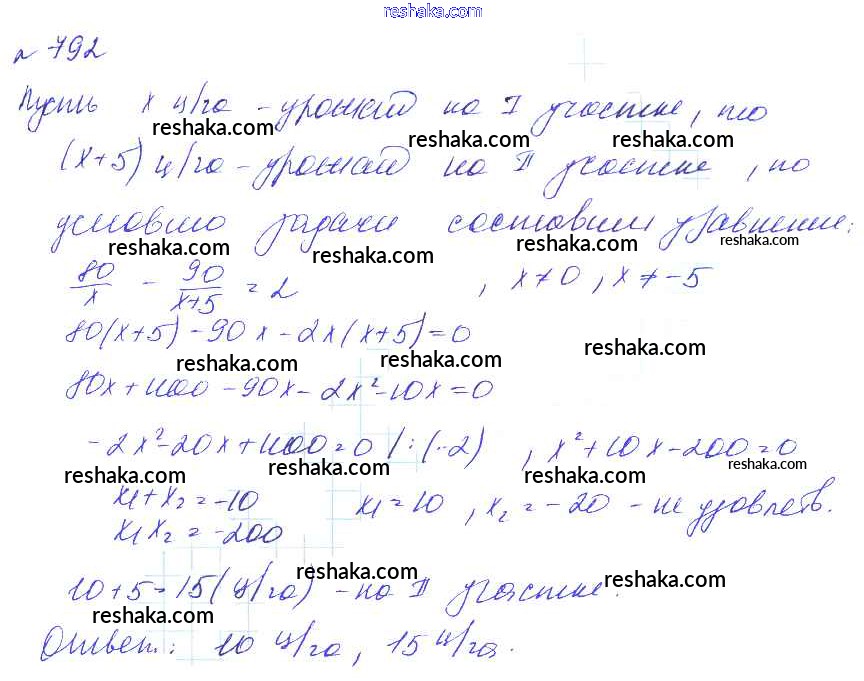 reshaka.com
№ 792
Пусть x ц/га - урожай на I участке, то
reshaka.com reshaka.com reshaka.com
(x+5) ц/га - урожай на II участке, по
reshaka.com reshaka.com reshaka.com
условию задачи составим уравнение:
reshaka.com reshaka.com reshaka.com reshaka.com
80/x - 90/(x+5) = 2 , x≠0, x≠-5
80(x+5)-90x-2x(x+5)=0
reshaka.com reshaka.com reshaka.com
80x+400-90x-2x²-10x=0
-2x²-20x+400=0 /:(-2) , x²+10x-200=0
reshaka.com reshaka.com reshaka.com reshaka.com
x₁+x₂=-10 x₁=10, x₂=-20 - не удовлетв.
x₁x₂=-200
reshaka.com reshaka.com
10+5=15(ц/га) - на II участке.
reshaka.com reshaka.com
Ответ: 10 ц/га, 15 ц/га.